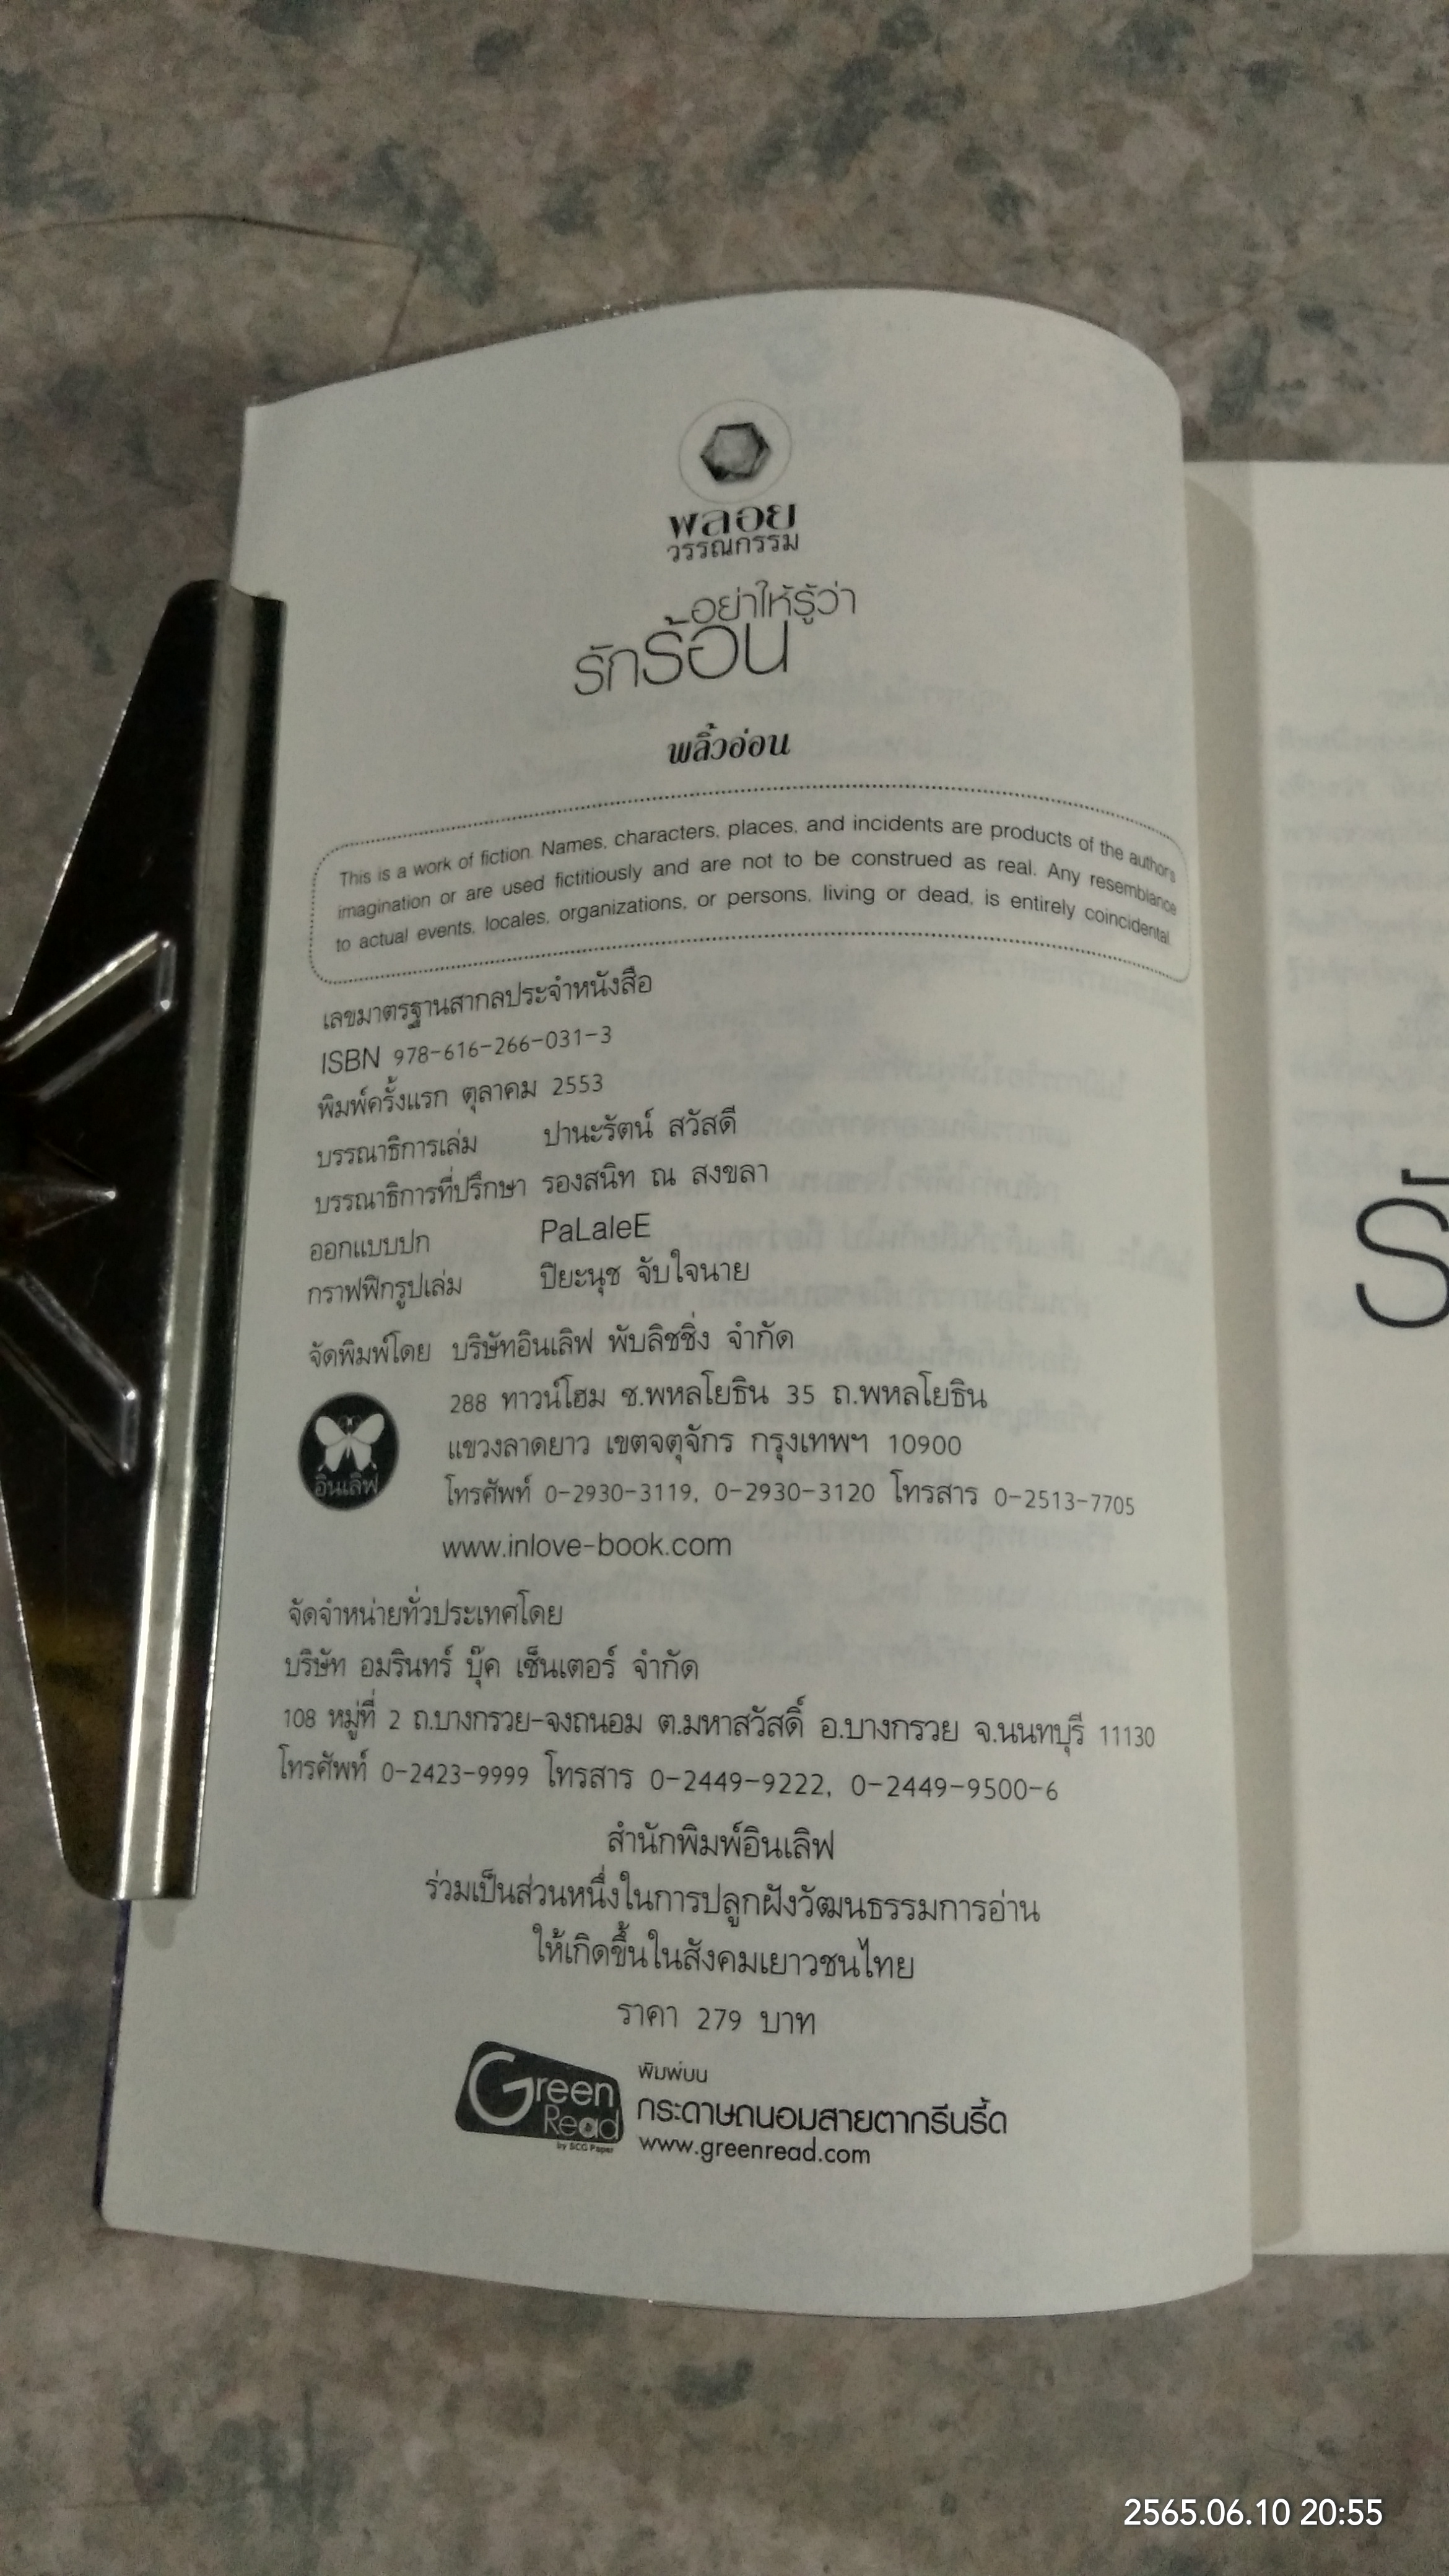 พลอย
วรรณกรรม
อย่าให้รู้ว่า
รักร้อน
พลิ้วอ่อน
This is a work of fiction. Names, characters, places, and incidents are products of the authors
imagination or are used fictitiously and are not to be construed as real. Any resemblance
to actual events, locales, organizations, or persons, living or dead, is entirely coincidental.
เลขมาตรฐานสากลประจำหนังสือ
ISBN 978-616-266-031-3
พิมพ์ครั้งแรก ตุลาคม 2553
บรรณาธิการเล่ม ปานะรัตน์ สวัสดี
บรรณาธิการที่ปรึกษา รองสนิท ณ สงขลา
ออกแบบปก PaLaleE
กราฟฟิกรูปเล่ม ปิยะนุช จับใจนาย
จัดพิมพ์โดย บริษัทอินเลิฟ พับลิชชิ่ง จำกัด
288 ทาวน์โฮม ซ.พหลโยธิน 35 ถ.พหลโยธิน
แขวงลาดยาว เขตจตุจักร กรุงเทพฯ 10900
อินเลิฟ
โทรศัพท์ 0-2930-3119, 0-2930-3120 โทรสาร 0-2513-7705
www.inlove-book.com
จัดจำหน่ายทั่วประเทศโดย
บริษัท อมรินทร์ บุ๊ค เซ็นเตอร์ จำกัด
108 หมู่ที่ 2 ถ.บางกรวย-จงถนอม ต.มหาสวัสดิ์ อ.บางกรวย จ.นนทบุรี 11130
โทรศัพท์ 0-2423-9999 โทรสาร 0-2449-9222, 0-2449-9500-6
สำนักพิมพ์อินเลิฟ
ร่วมเป็นส่วนหนึ่งในการปลูกฝังวัฒนธรรมการอ่าน
ให้เกิดขึ้นในสังคมเยาวชนไทย
ราคา 279 บาท
Green
Read
by SCG Paper
พิมพ์บน
กระดาษถนอมสายตากรีนรี้ด
www.greenread.com
2565.06.10 20:55